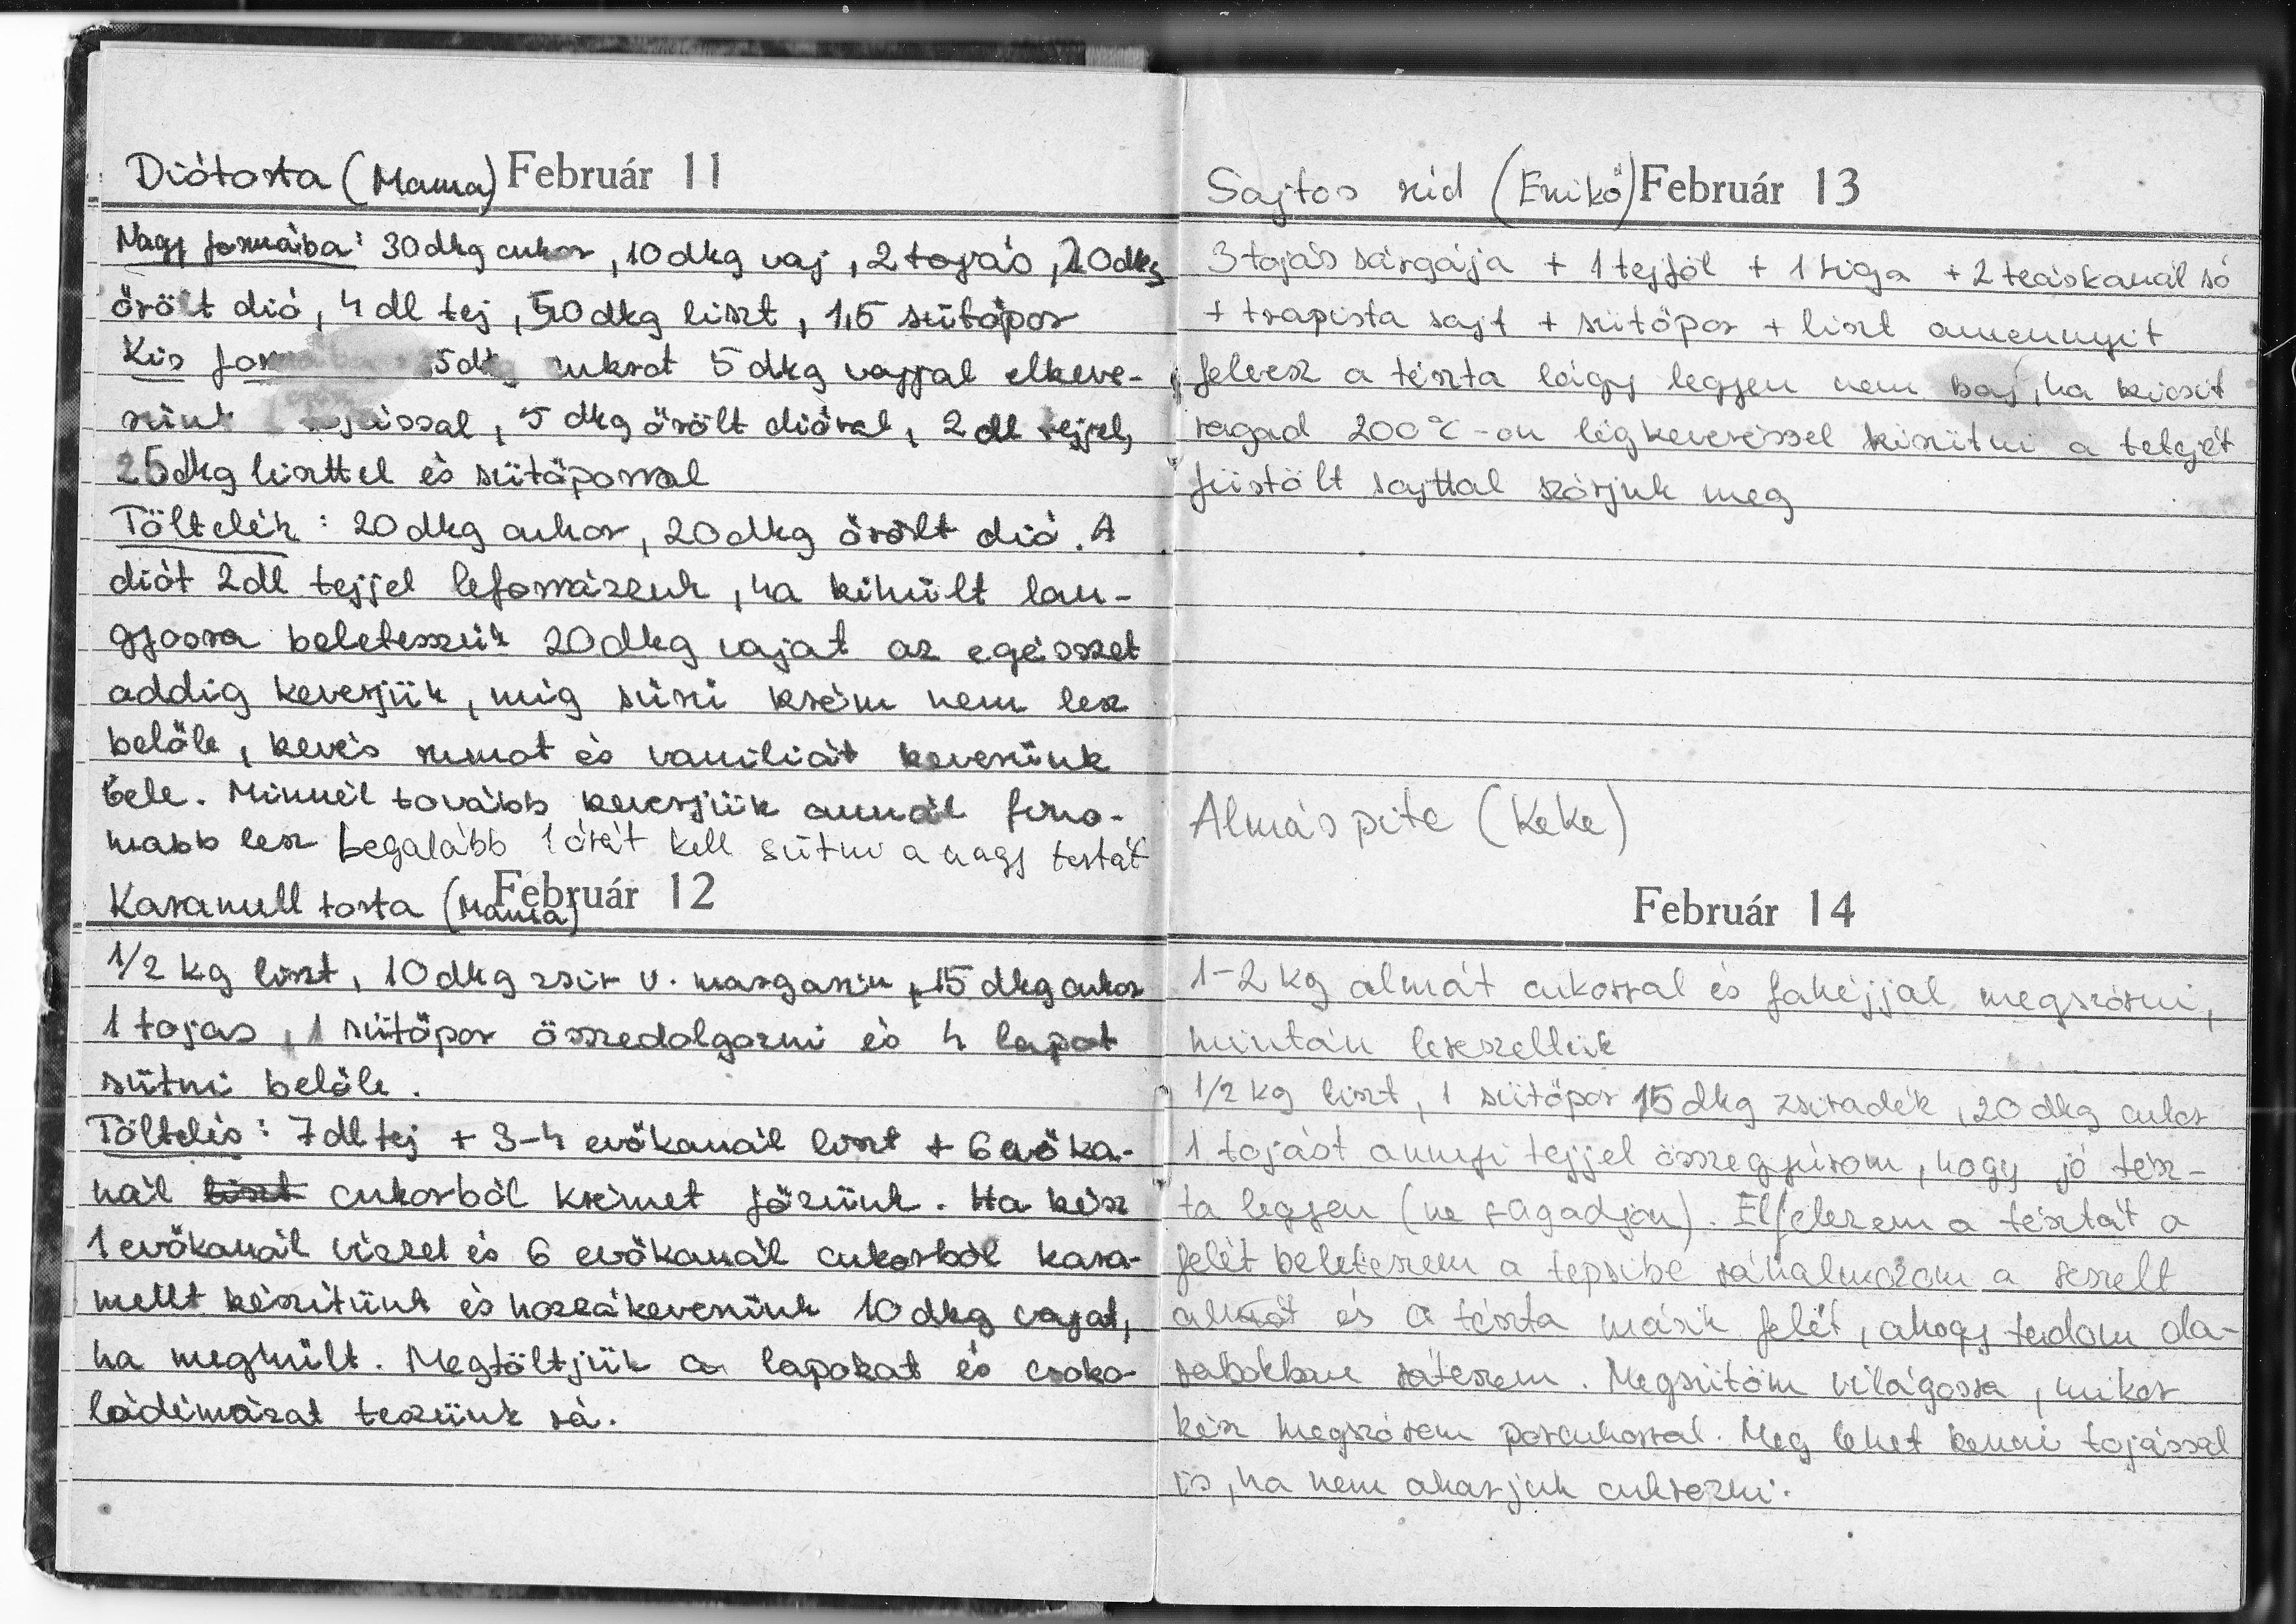 Diótorta (Mama) Február 11
Nagy formába: 30dkg cukor, 10dkg vaj, 2 tojás, 10dkg
őrölt dió, 4 dl tej, 50dkg liszt, 1,5 sütőpor
Kis 5dkg cukrot 5dkg vajjal elkeve-
rünk tojással, 5 dkg őrölt dióval, 2 dl tejjel,
25dkg liszttel és sütőporral
Töltelék: 20dkg cukor, 20dkg őrölt dió. A
diót 2dl tejjel leforrázzuk, ha kihűlt lan-
gyosra beletesszük 20dkg vajat az egésszet
addig keverjük, míg sűrű krém nem lesz
belőle, kevés rumot és vaníliát keverünk
bele. Minnél tovább keverjük annál fino-
mabb lesz Legalább 1 órát kell sütni a nagy tortát
Karamell torta (Mama) Február 12
1/2 kg liszt, 10dkg zsír v. margarin, 15 dkg cukor
1 tojas, 1 sütőpor összedolgozni és 4 lapot
sütni belőle.
Töltelés: 7dl tej + 3-4 evőkanál liszt + 6 evőka-
nál liszt cukorból krémet főzünk. Ha kész
1 evőkanál vízzel és 6 evőkanál cukorból kara-
mellt készítünk és hozzákeverünk 10dkg vajat,
ha meghűlt. Megtöltjük a lapokat és csoko-
ládémázat teszünk rá.
Sajtos rúd (Enikő) Február 13
3 tojás sárgája + 1 tejföl + 1 Liga + 2 teáskanál só
+ trapista sajt + sütőpor + liszt amennyit
felvesz a tészta lágy legyen nem baj, ha kicsit
ragad 200°C-on légkeveréssel kisütni a tetejét
füstölt sajttal szórjuk meg
Almáspite (Keke)
Február 14
1-2 kg almát cukorral és fahéjjal megszórni,
miután lereszeltük
1/2 kg liszt, 1 sütőpor 15dkg zsiradék, 20dkg cukor
1 tojást annyi tejjel összegyúrom, hogy jó tész-
ta legyen (ne ragadjon). Elfelezem a tésztát a
felét beleteszem a tepsibe ráhalmozom a reszelt
almát és a tészta másik felét, ahogy tudom da-
rabokban ráteszem. Megsütöm világosra, mikor
kész megszórom porcukorral. Meg lehet kenni tojással
is, ha nem akarjuk cukrozni.